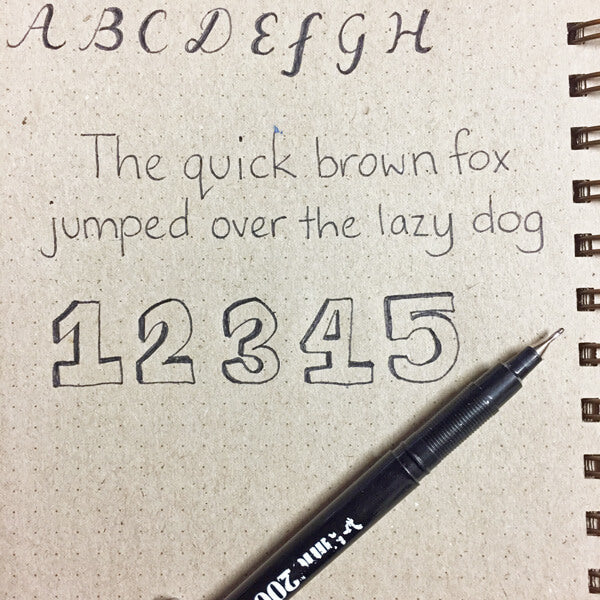 A B C D E f G H
The quick brown fox
jumped over the lazy dog
1 2 3 4 5
200